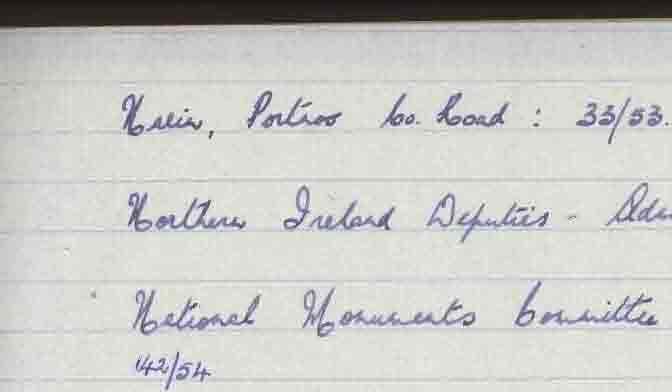 Nenin, Portroe Co. Road : 33/53.
Northern Ireland Deputies -
National Monuments Committee
42/54